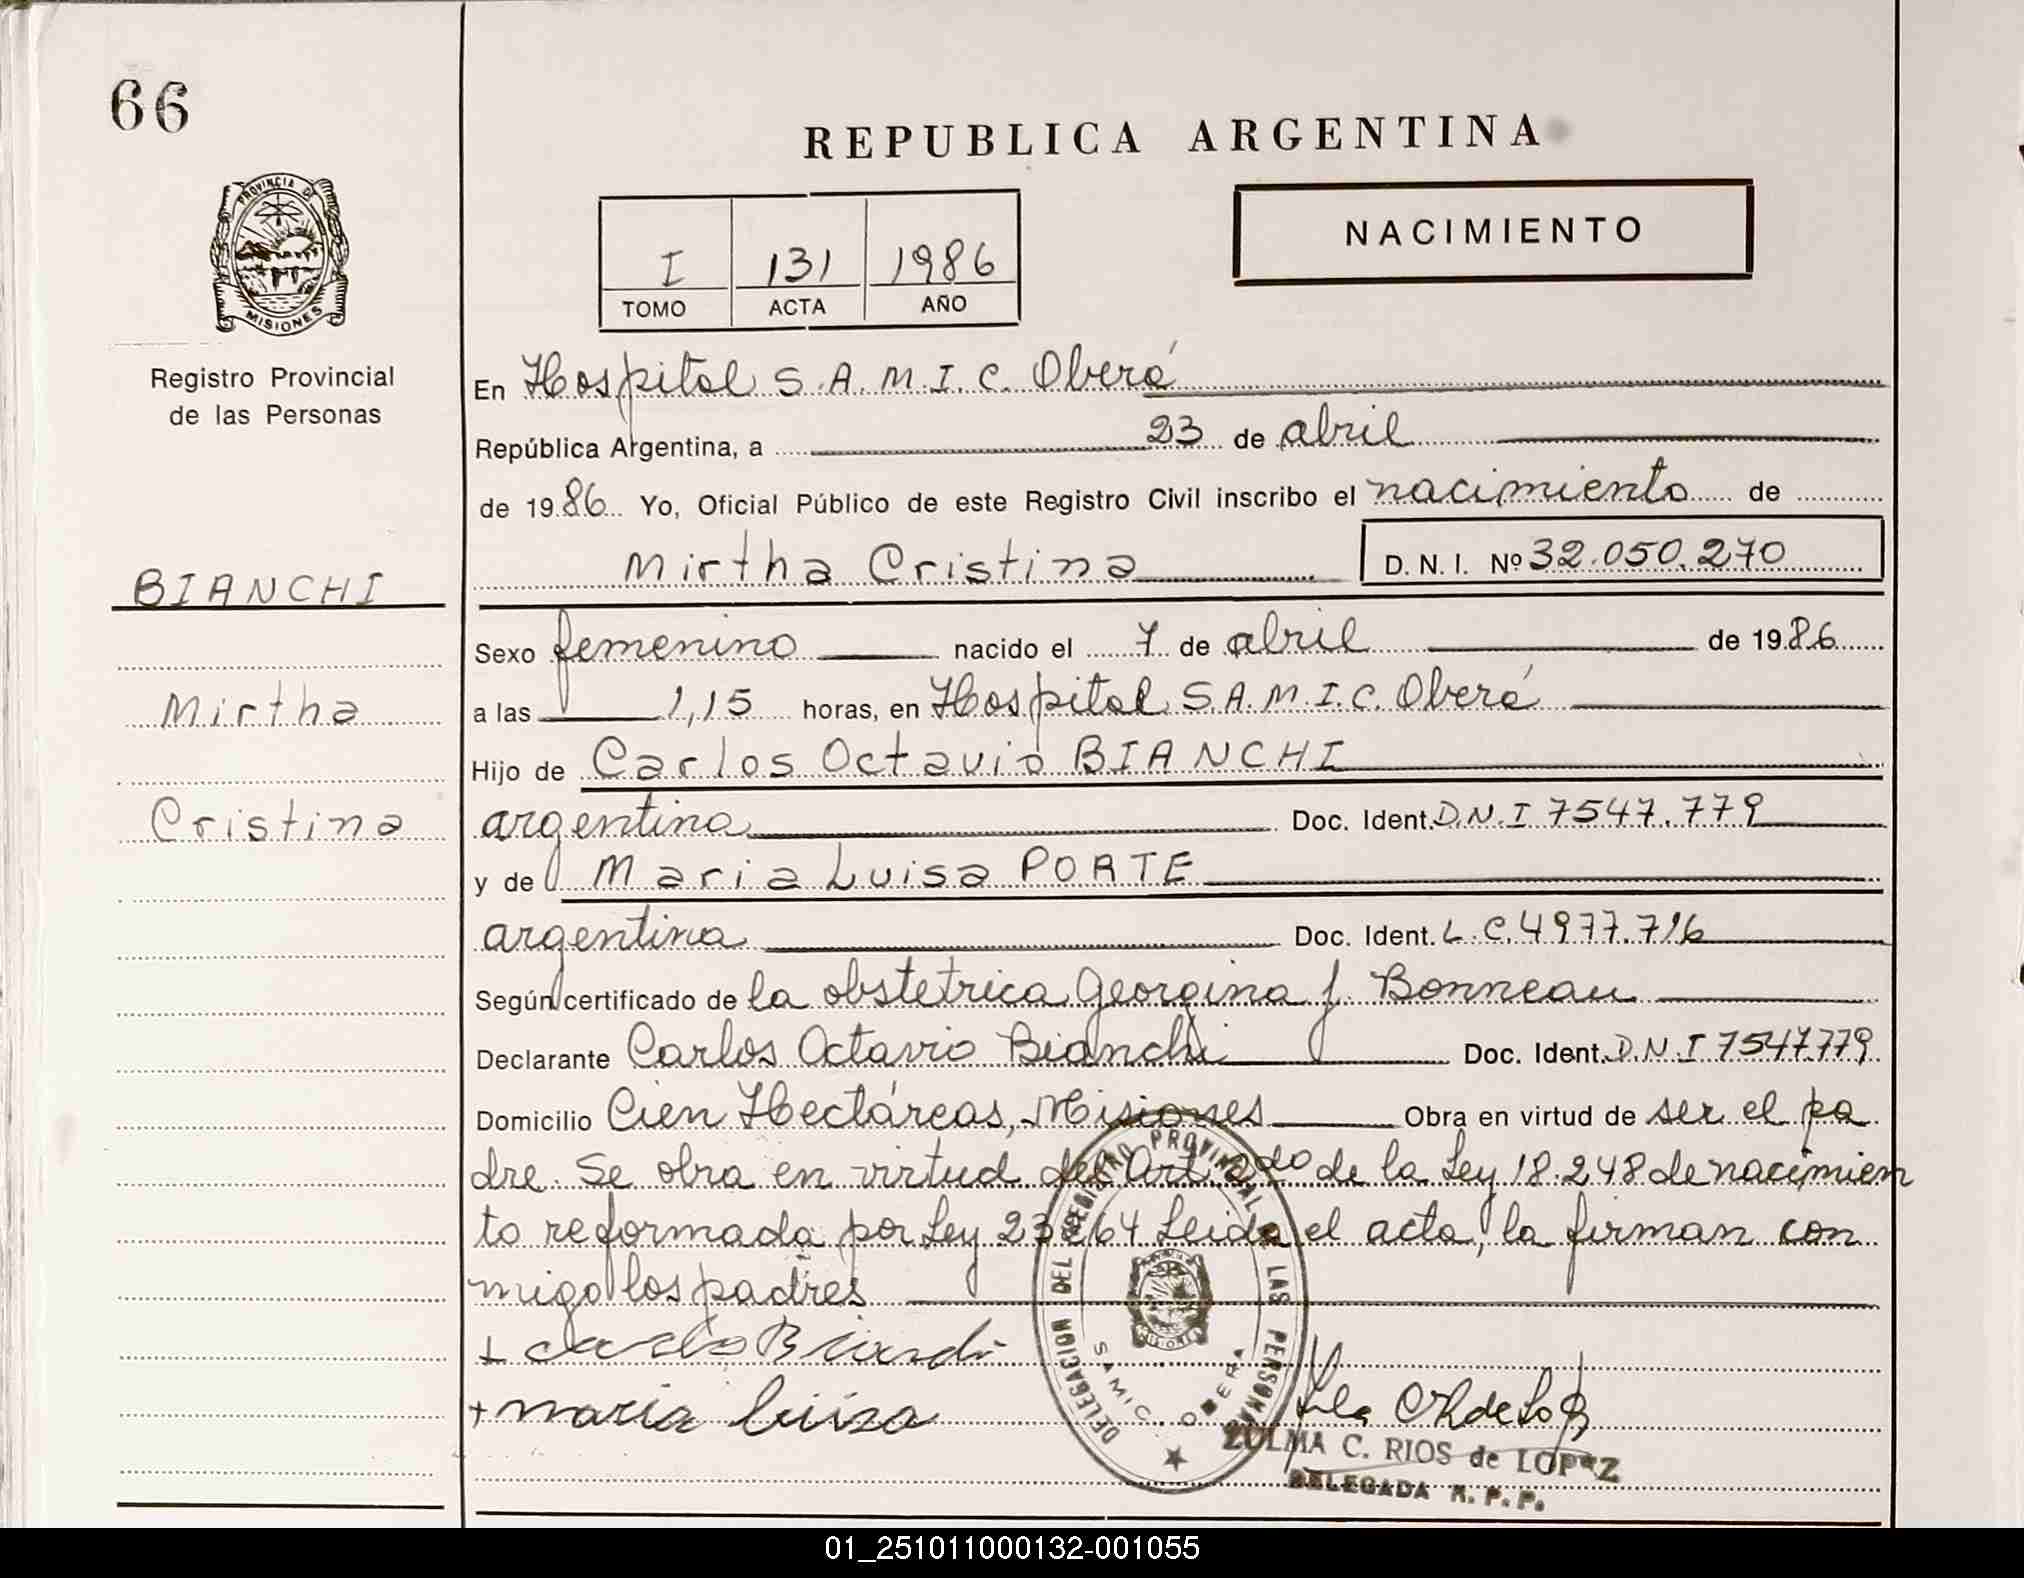 66
REPUBLICA ARGENTINA
PROVINCIA DE
MISIONES
Registro Provincial
de las Personas
I 131 1986
TOMO ACTA AÑO
NACIMIENTO
En Hospital S.A.M.I.C. Oberá
República Argentina, a 23 de abril
de 1986 Yo, Oficial Público de este Registro Civil inscribo el nacimiento de
Mirtha Cristina D. N. I. Nº 32.050.270
BIANCHI
Mirtha
Cristina
Sexo femenino nacido el 7 de abril de 1986
a las 1,15 horas, en Hospital S.A.M.I.C. Oberá
Hijo de Carlos Octavio BIANCHI
argentina Doc. Ident. D.N.I 7547.779
y de Maria Luisa PORTE
argentina Doc. Ident. L.C. 4977.716
Según certificado de la obstetrica Georgina J. Bonneau
Declarante Carlos Octavio Bianchi Doc. Ident. D.N.I 7547.779
Domicilio Cien Hectáreas, Misiones Obra en virtud de ser el pa
dre. Se obra en virtud del Art. 2do de la Ley 18.248 de nacimien
to reformada por Ley 23264 Leida el acta, la firman con
migo los padres
+ Carlo Bianchi
+ maria luisa
DELEGACION DEL REGISTRO PROVINCIAL DE LAS PERSONAS
SAMIC OBERA
MISIONES
ZULMA C. RIOS de LOPEZ
DELEGADA R. P. P.
01_251011000132-001055